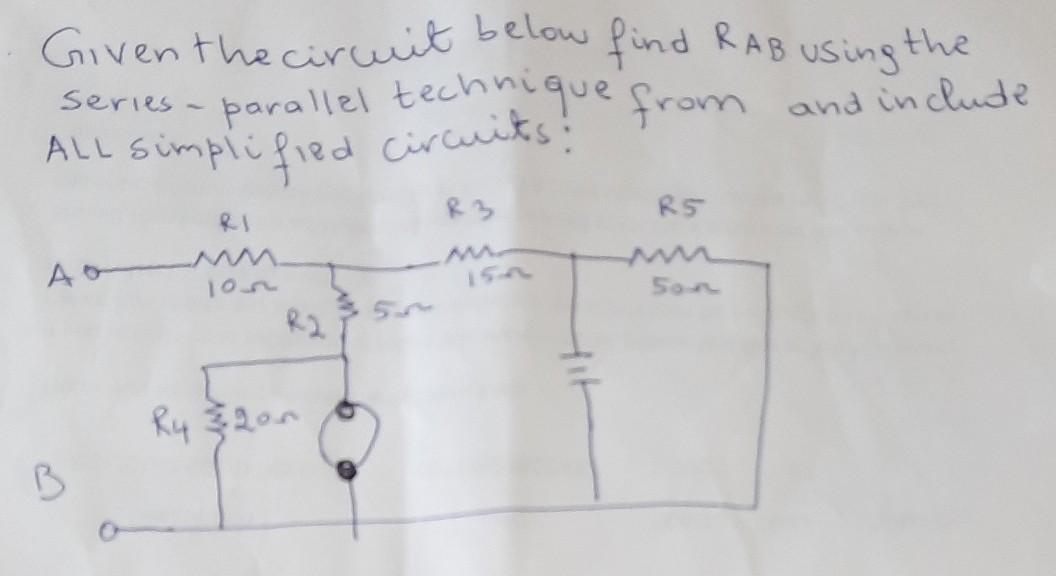 Given the circuit below find RAB using the
series - parallel technique from and include
ALL simplified circuits:
R1
R3
R5
A
10Ω
15Ω
50Ω
R2
5Ω
R4
20Ω
B